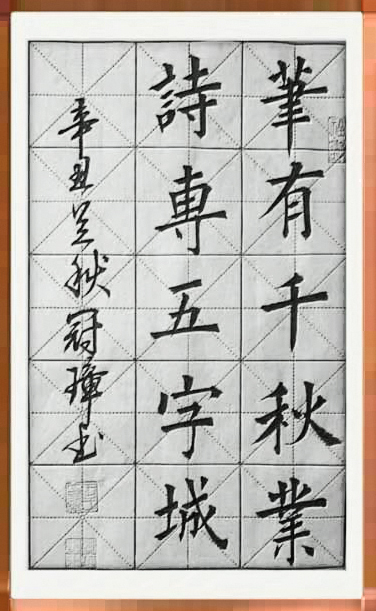 筆有千秋業
詩専五字城
辛丑兰秋冠璋书